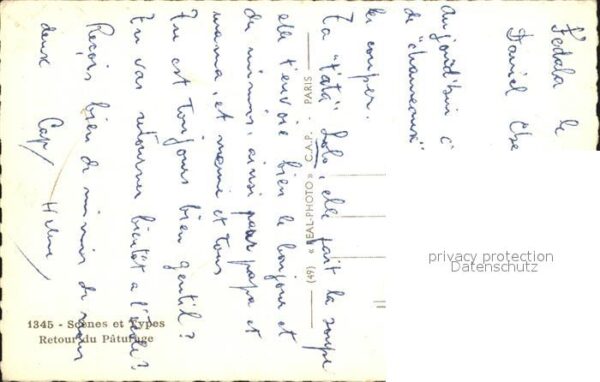 Fedala le
Daniel Che
Aujourd'hui c'
de "chameaux"
la couper.
Ta "tata" Lolo, elle fait la soupe
elle t'envoie bien le bonjour et
du mimis, ainsi pour papa et
mama, et mémé et tous
Tu est toujours bien gentil?
Tu vas retourner bientôt a l'école?
Reçois bien de mimis de nous
deux
1345 - Scènes et Types
Retour du Pâturage
(49) « REAL-PHOTO » C.A.P. - PARIS
privacy protection
Datenschutz